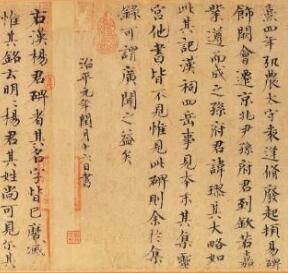 熹四年弘農太守袁逢修廢起頓易碑
飾闕會遷京兆尹孫府君到欽若嘉
業遵而成之孫府君諱璆其大略如
此其記漢祠四岳事見本末其集靈
宮他書皆不見惟見此碑則余於集
錄可謂廣聞之益矣
治平元年閏月十六日書
右漢楊君碑者其名字皆已磨滅
惟其銘云明明楊君其姓尚可見尔其